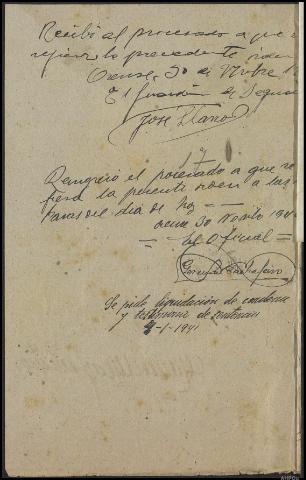 Recibí al procesado a que se
refiere la precedente orden
Orense, 30 de Nvbre
El Guardia de Seguri
José Llano
Reingresó el procesado a que re
fiere la presente orden a las
del día de hoy
30 Novbre 1940
El Oficial
Se pide liquidación de condena
y testimonio de sentencia
4-1-1941
AHPOu